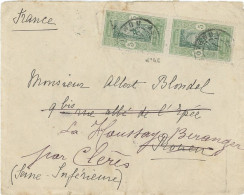 France
Monsieur Albert Blondel
9 bis rue abbé de l'épée
La Houssaye Béranger
Rouen
par Clères
(Seine-Inférieure)